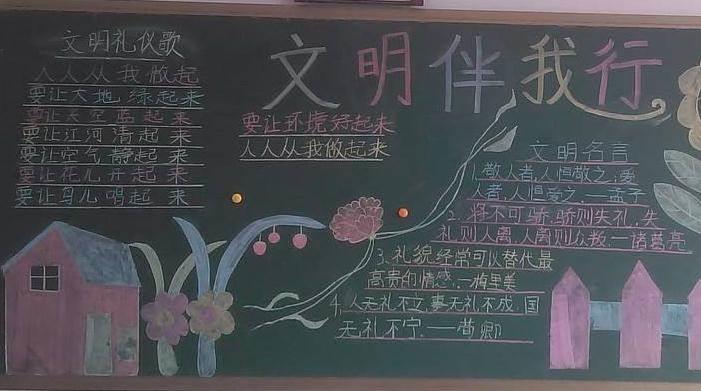 文明伴我行
文明礼仪歌
人人从我做起
要让大地绿起来
要让天空蓝起来
要让江河清起来
要让空气静起来
要让花儿开起来
要让鸟儿唱起来
要让环境好起来
人人从我做起来
文明名言
1.敬人者,人恒敬之;爱
人者,人恒爱之.—孟子
2.将不可骄,骄则失礼,失
礼则人离,人离则众叛.—诸葛亮
3.礼貌经常可以替代最
高贵的情感.—梅里美
4.人无礼不立,事无礼不成,国
无礼不宁.——荀卿